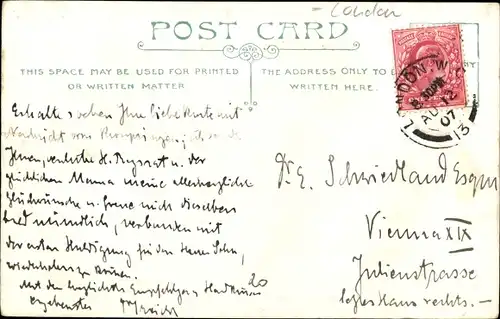 - London
POST CARD
THIS SPACE MAY BE USED FOR PRINTED
OR WRITTEN MATTER
THE ADDRESS ONLY TO BE
WRITTEN HERE.
LONDON W.C
8.30PM
AU 12
07
13
Erhalte soeben Ihre liebe Karte mit
Nachricht vom
Ihnen, verehrter H. Regrat u. der
glücklichen Mama meine allerherzlichsten
Glückwünsche u. freue mich dieselben
bald mündlich, verbunden mit
der ersten Huldigung für den Herrn Sohn,
wiederholen zu können.
Mit den herzlichsten Empfehlungen u. Handküssen
ergebenster
20
Dr. E. Schwiedland Esqre
Vienna XIX
Julienstrasse
letztes Haus rechts.-